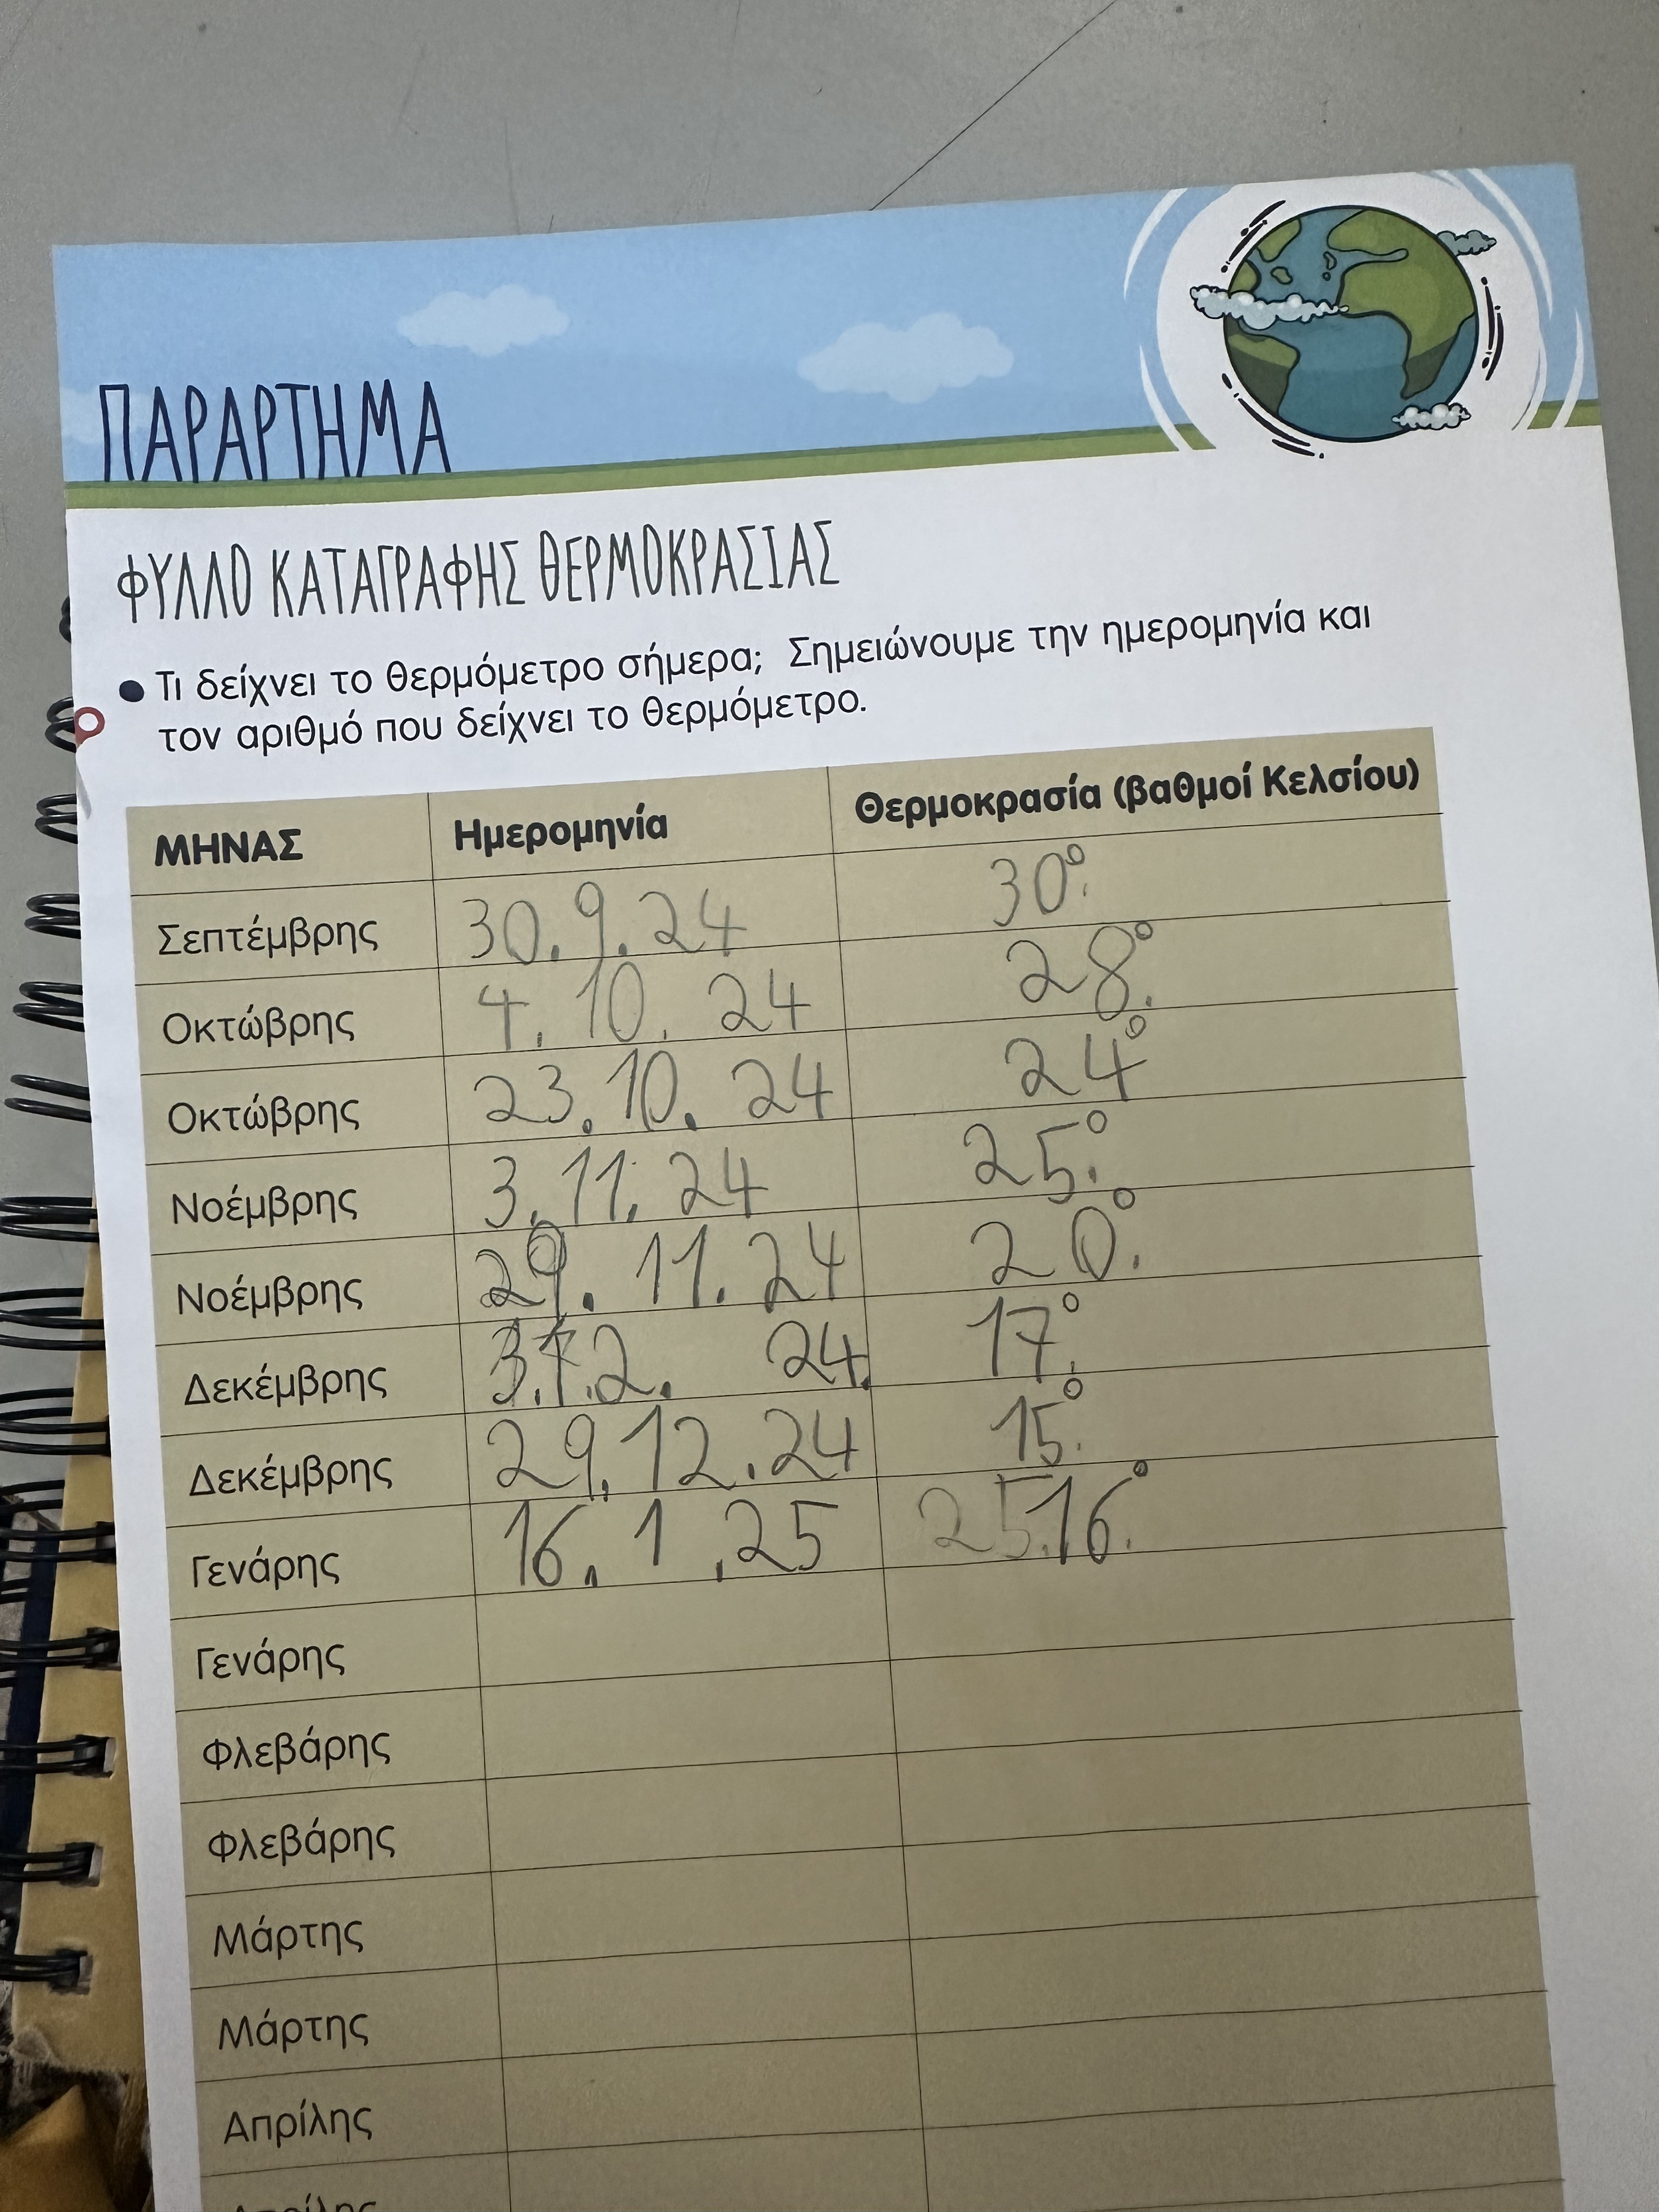 ΠΑΡΑΡΤΗΜΑ
ΦΥΛΛΟ ΚΑΤΑΓΡΑΦΗΣ ΘΕΡΜΟΚΡΑΣΙΑΣ
● Τι δείχνει το θερμόμετρο σήμερα; Σημειώνουμε την ημερομηνία και
τον αριθμό που δείχνει το θερμόμετρο.
ΜΗΝΑΣ Ημερομηνία Θερμοκρασία (βαθμοί Κελσίου)
Σεπτέμβρης 30.9.24 30°.
Οκτώβρης 4.10.24 28°.
Οκτώβρης 23.10.24 24°
Νοέμβρης 3.11.24 25°.
Νοέμβρης 29.11.24 20°.
Δεκέμβρης 3.12.24. 17°.
Δεκέμβρης 29.12.24 15°.
Γενάρης 16.1.25 16°.
Γενάρης
Φλεβάρης
Φλεβάρης
Μάρτης
Μάρτης
Απρίλης